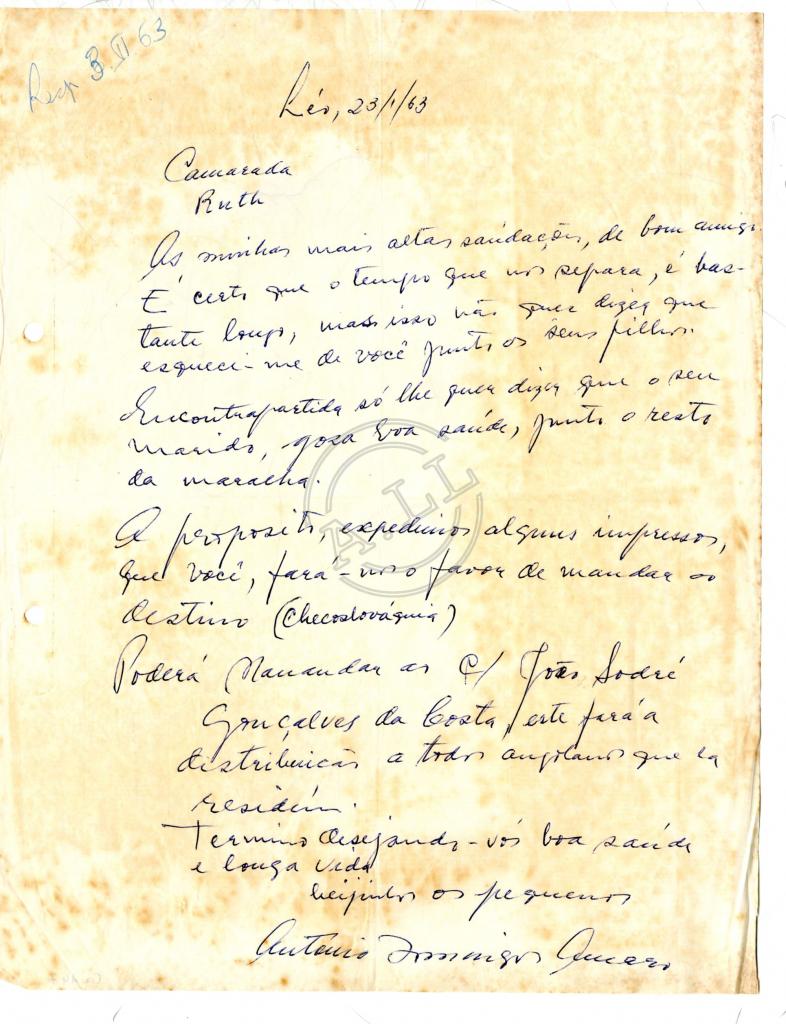 Resp 3.II.63
Léo, 23/1/63
Camarada
Ruth
As minhas mais altas saudações, de bom amigo.
É certo que o tempo que nos separa, é bas-
tante longo, mas isso não quer dizer que
esqueci-me de você junto os seus filhos.
Encontrapartida só lhe quer dizer que o seu
marido, gosa boa saúde, junto o resto
da maralha.
A proposito, expedimos alguns impressos,
que você, fará-nos o favor de mandar ao
destino (Checoslováquia)
Poderá Manandar ao C/ João Sodré
Gonçalves da Costa, este fará a
distribuição a todos angolanos que la
residém.
Termino desejando-vós boa saúde
e longa vida
beijinhos os pequenos
António Domingos Amaro
A.LL